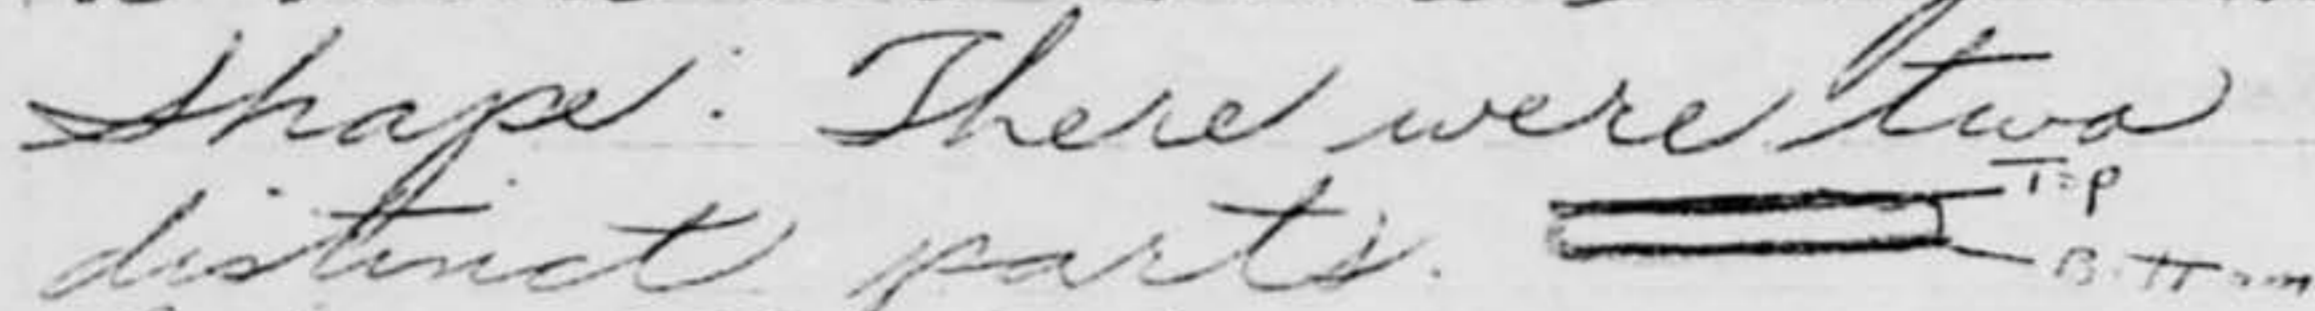 shape. There were two
distinct parts.
Top
Bottom